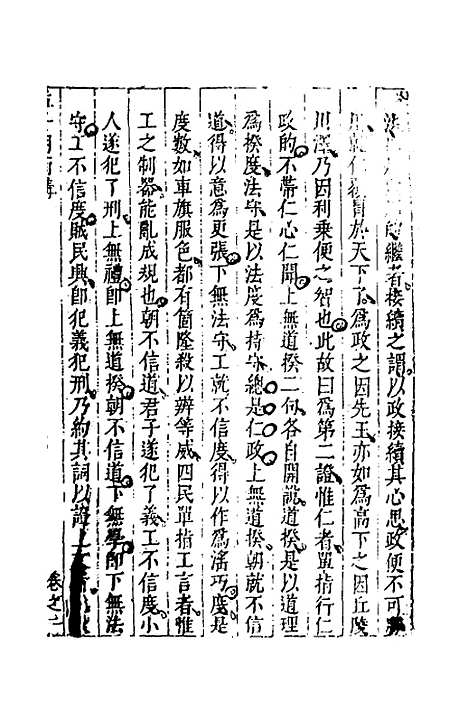 繼者接續之謂以政接續其心思政便不可勝
仁覆冒於天下了爲政之因先王亦如爲高下之因丘陵
川澤乃因利乘便之智也此故曰爲第二證惟仁者單指行仁
政的不帶仁心仁聞上無道揆二句各自開說道揆是以道理
爲揆度法守是以法度爲持守總是仁政上無道揆朝就不信
道得以意爲更張下無法守工就不信度得以作爲淫巧度是
度數如車旗服色都有箇隆殺以辨等威四民單指工言者惟
工之制器能亂成規也朝不信道君子遂犯了義工不信度小
人遂犯了刑上無禮卽上無道揆朝不信道下無學卽下無法
守工不信度賊民興卽犯義犯刑乃約其詞以證上
卷之二